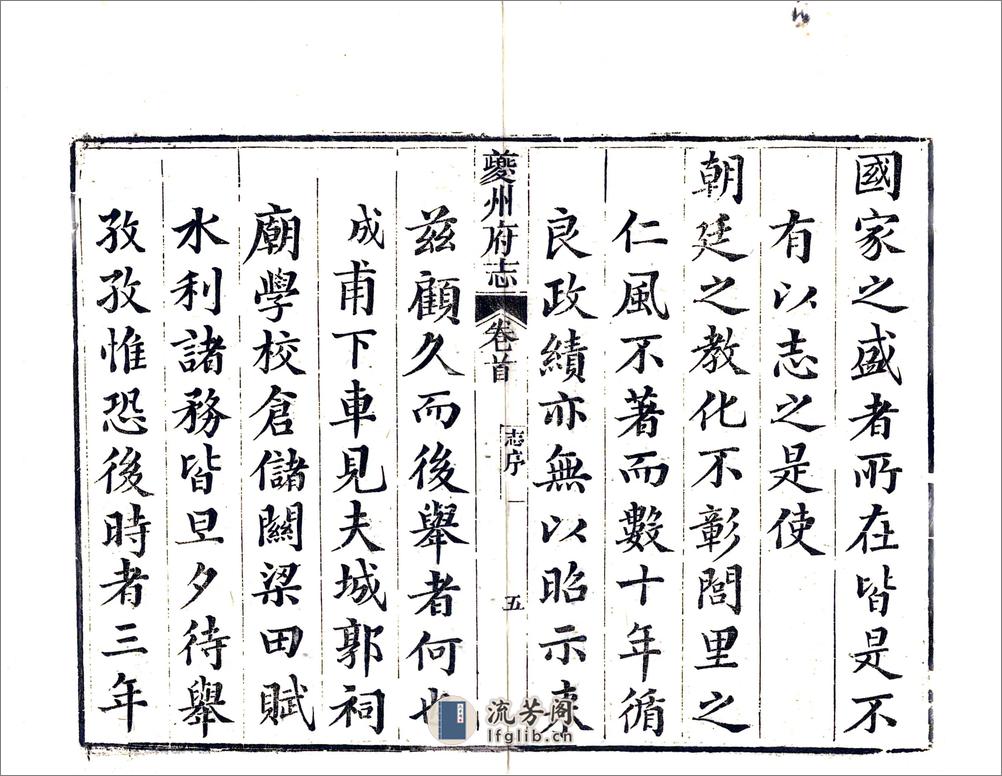 國家之盛者所在皆是不
有以志之是使
朝廷之教化不彰閭里之
仁風不著而數十年循
良政績亦無以昭示來
夔州府志 卷首 志序 一 五
茲顧久而後舉者何也
成甫下車見夫城郭祠
廟學校倉儲關梁田賦
水利諸務皆旦夕待舉
孜孜惟恐後時者三年
流芳阁
lfglib.cn